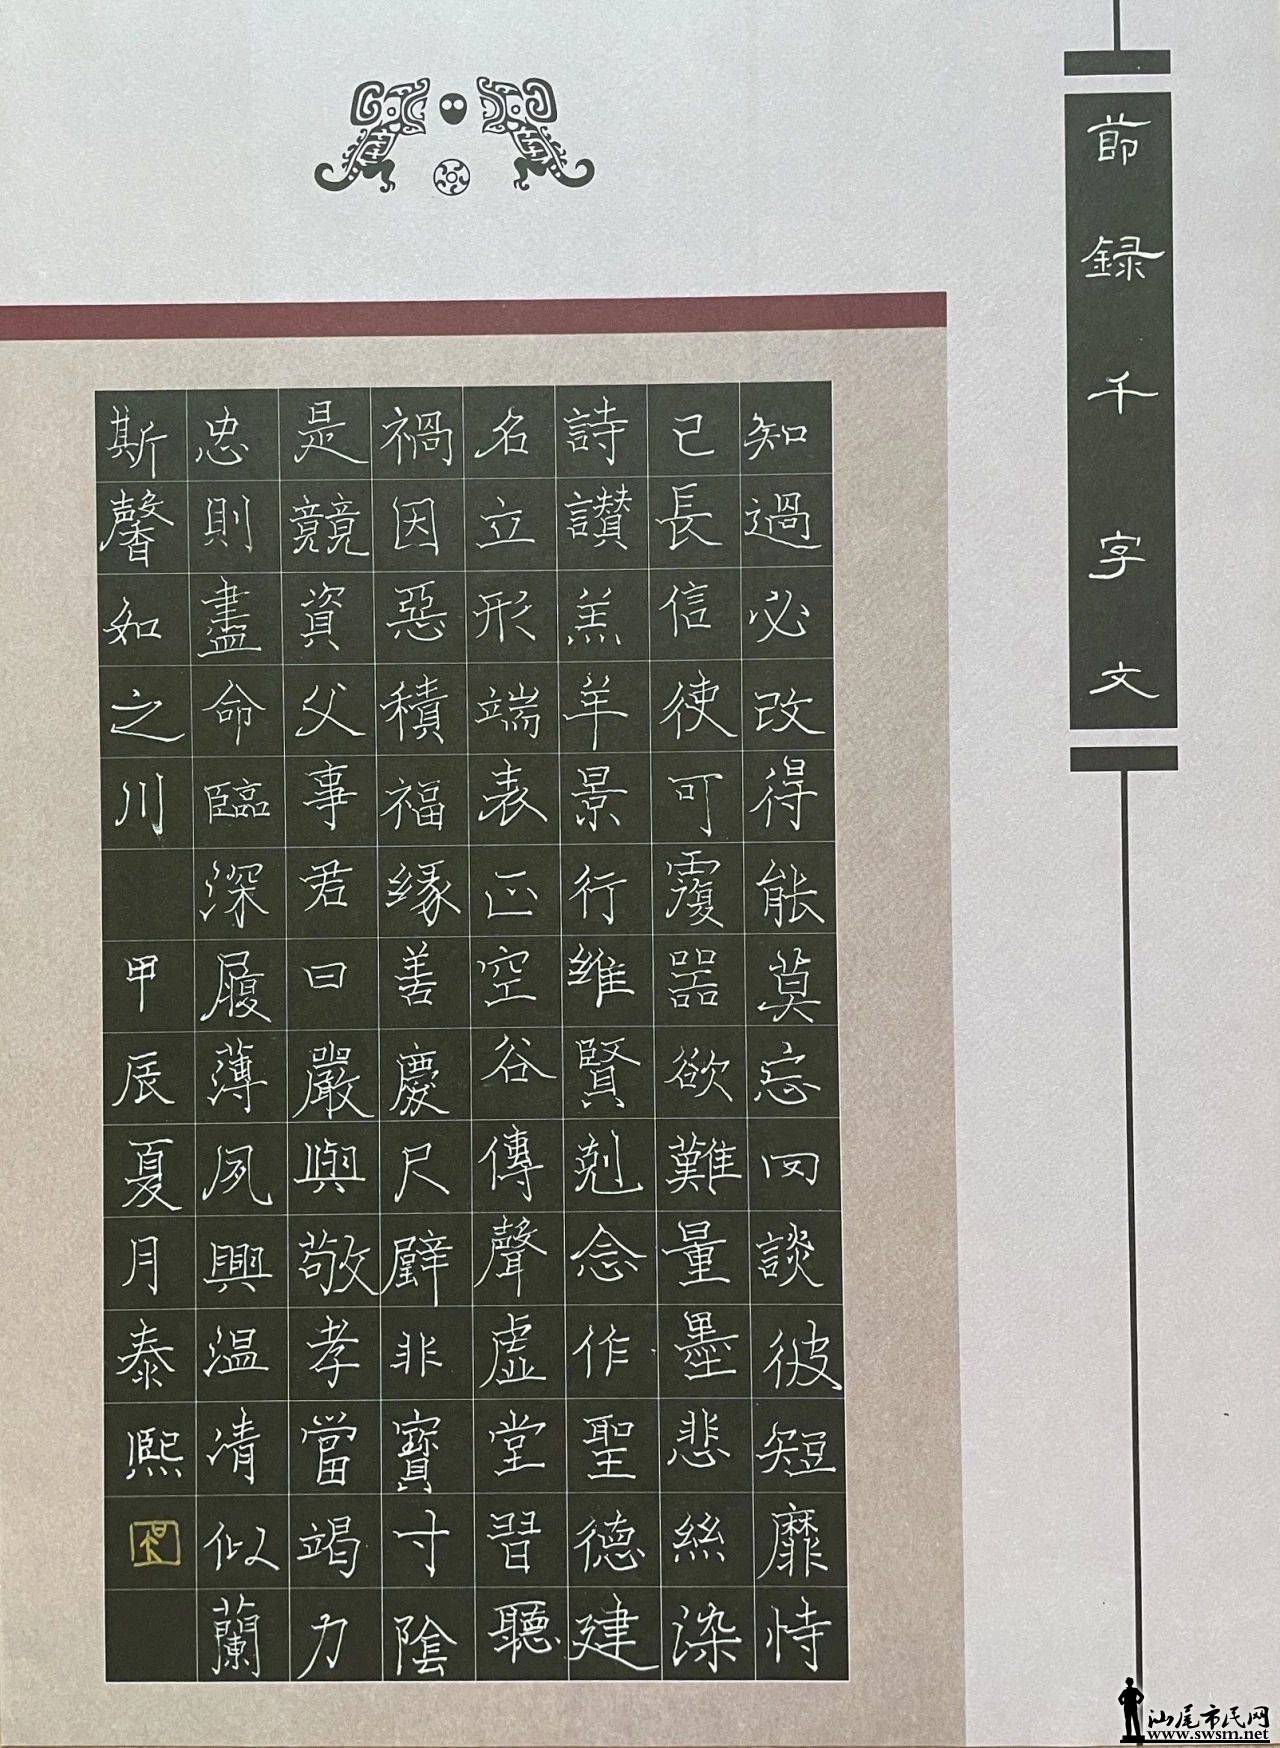 節録千字文
知過必改得能莫忘罔談彼短靡恃
己長信使可覆器欲難量墨悲絲染
詩讃羔羊景行維賢剋念作聖德建
名立形端表正空谷傳聲虛堂習聽
禍因惡積福緣善慶尺璧非寶寸陰
是競資父事君曰嚴與敬孝當竭力
忠則盡命臨深履薄夙興温凊似蘭
斯馨如之川 甲辰夏月泰熙
汕尾市民网
www.swsm.net